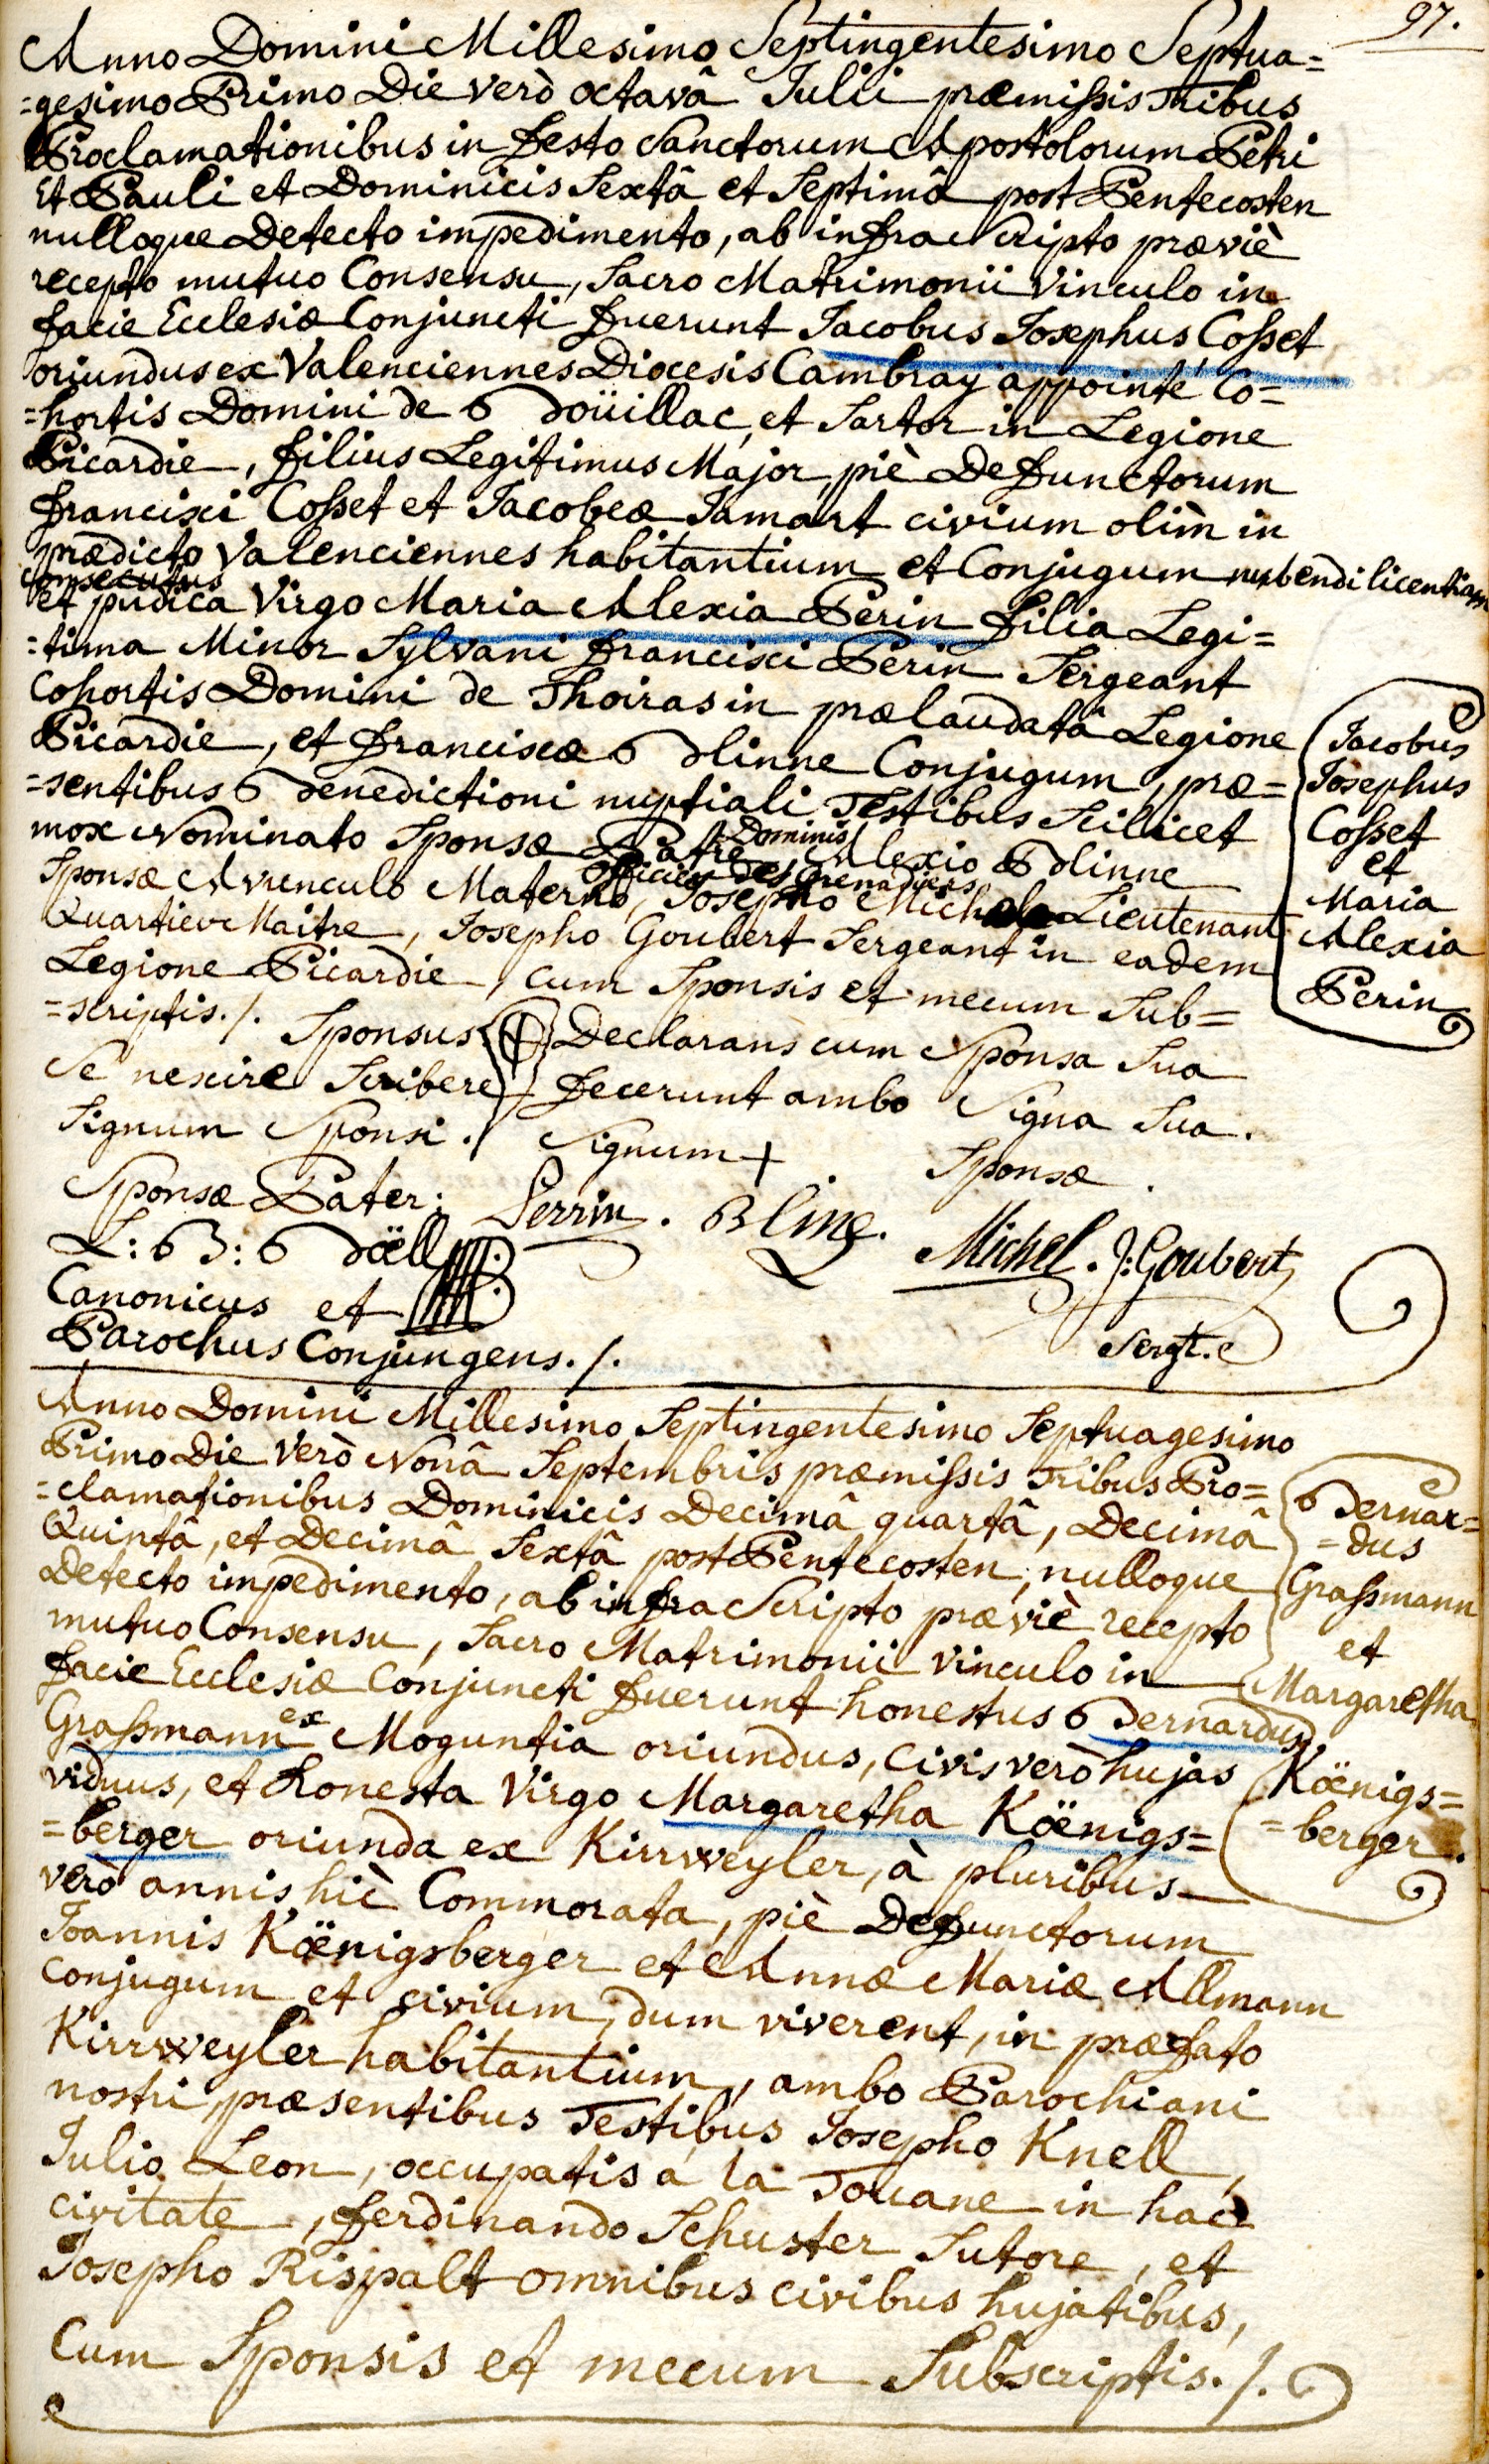 97.
Anno Domini Millesimo Septingentesimo Septua=
=gesimo Primo Die verò octavâ Julii præmissis Tribus
Proclamationibus in Festo Sanctorum Apostolorum Petri
Et Pauli et Dominicis Sextâ et Septimâ post Pentecosten
nulloque Detecto impedimento, ab infra Scripto præviè
recepto mutuo Consensu, Sacro Matrimonii Vinculo in
facie Ecclesiæ Conjuncti Fuerunt Jacobus Josephus Cosset
oriundus ex Valenciennes Diocesis Cambray appointé Co=
=hortis Domini de Boüillac, et Sartor in Legione
Picardie, Filius Legitimus Major, piè Defunctorum
Francisci Cosset et Jacobeæ Jamart civium olìm in
prædicto Valenciennes habitantium et Conjugum nubendi licentiam
consecutus
et pudica Virgo Maria Alexia Perin Filia Legi=
=tima Minor Sylvani Francisci Perin Sergeant
Cohortis Domini de Thoiras in prælaudatâ Legione
Picardie, et Franciscæ Blinne Conjugum, præ=
=sentibus Benedictioni nuptiali Testibus Scilicet
mox Nominato Sponsæ Patre, Dominis Alexio Blinne
Officier des Grenadiers
Sponsæ Avunculo Materno, Josepho Michele Lieutenant
Quartier Maitre, Josepho Goubert Sergeant in eadem
Legione Picardie, cum Sponsis et mecum Sub=
=scriptis./. Sponsus + Declarans cum Sponsa Sua
Se nescire Scribere Fecerunt ambo Signa Sua.
Signum Sponsi./ Signum + Sponsæ.
Sponsæ Pater: Perrin. Bline. Michel. J: Goubert
Sergt.
L: B: Böell
Canonicus et
Parochus Conjungens./.
Jacobus
Josephus
Cosset
et
Maria
Alexia
Perin
Anno Domini Millesimo Septingentesimo Septuagesimo
Primo Die Verò Nonâ Septembris præmissis Tribus Pro=
=clamationibus Dominicis Decimâ quartâ, Decimâ
Quintâ, et Decimâ Sextâ post Pentecosten, nulloque
Detecto impedimento, ab infra Scripto præviè recepto
mutuo Consensu, Sacro Matrimonii vinculo in
Facie Ecclesiæ Conjuncti Fuerunt honestus Bernardus
Grassmann ex Moguntia oriundus, civis verò hujas
viduus, et Honesta Virgo Margaretha Köenigs=
=berger oriunda ex Kirrweyler, à pluribus
verò annis hìc Commorata, piè Defunctorum
Joannis Köenigsberger et Annæ Mariæ Allmann
Conjugum et civium, dum viverent, in præfato
Kirrweyler habitantium, ambo Parochiani
nostri, præsentibus Testibus Josepho Knell,
Julio Leon, occupatis à la Touane in hac
civitate, Ferdinando Schuster Sutore, et
Josepho Rispalt omnibus civibus hujatibus,
Cum Sponsis et mecum Subscriptis./.
Bernar=
=dus
Grassmann
et
Margaretha
Köenigs=
=berger.